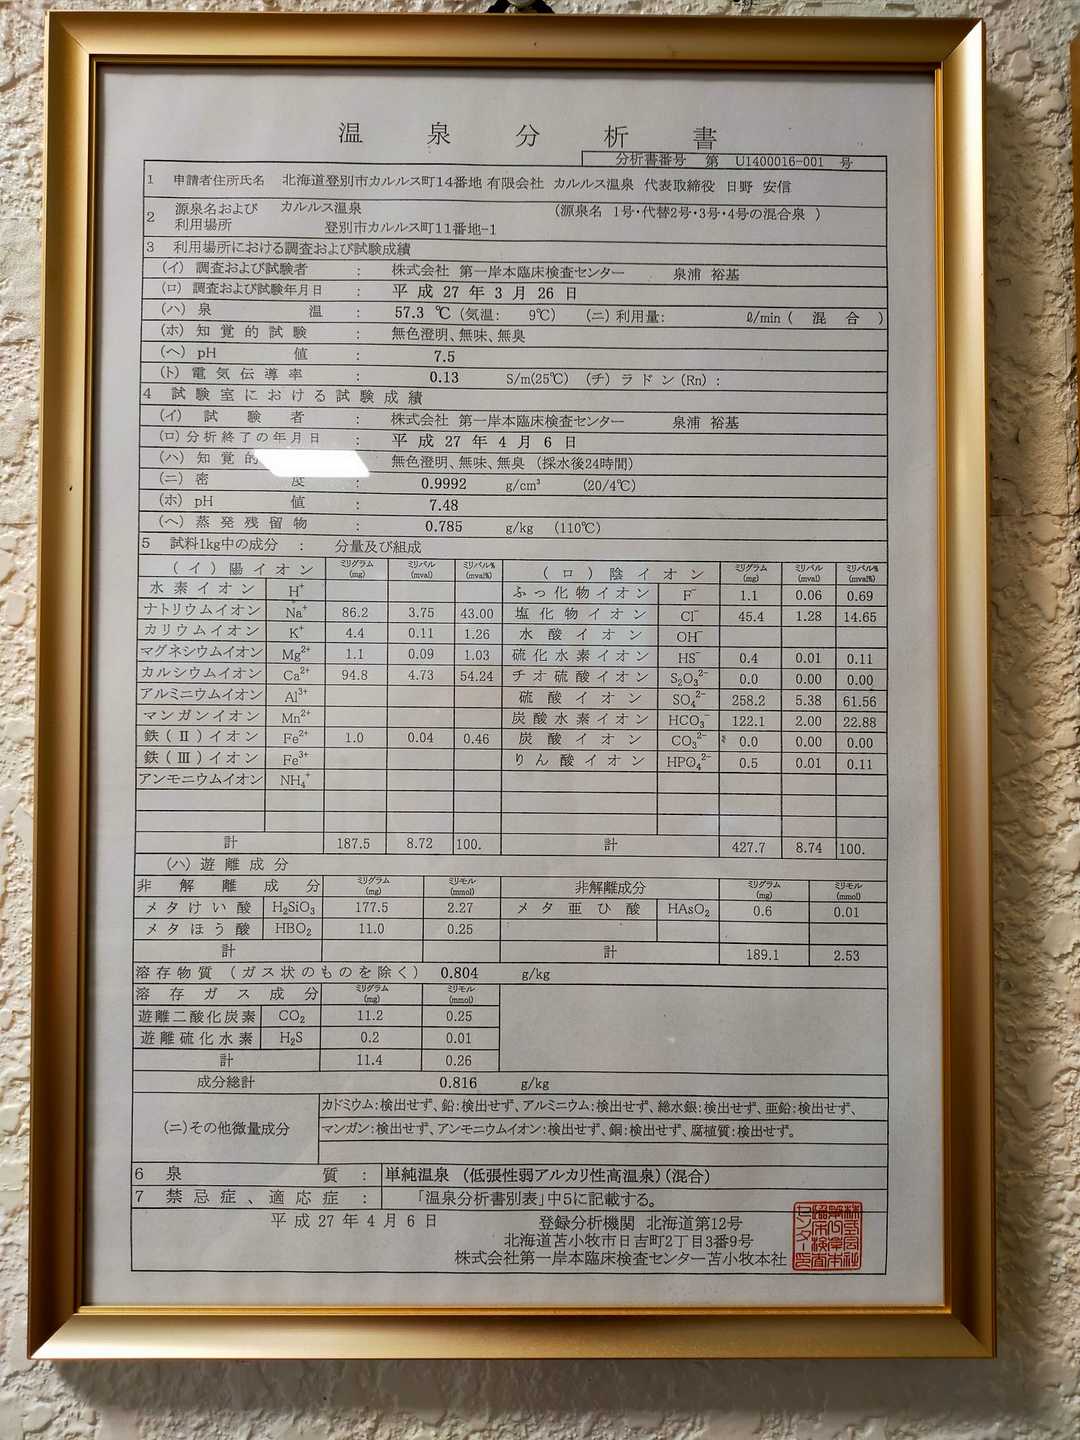 温泉分析書
分析書番号 第 U1400016-001 号
1 申請者住所氏名 北海道登別市カルルス町14番地 有限会社 カルルス温泉 代表取締役 日野 安信
2 源泉名および利用場所 カルルス温泉 (源泉名 1号・代替2号・3号・4号の混合泉 )
登別市カルルス町11番地-1
3 利用場所における調査および試験成績
(イ) 調査および試験者 : 株式会社 第一岸本臨床検査センター 泉浦 裕基
(ロ) 調査および試験年月日 : 平成 27 年 3 月 26 日
(ハ) 泉温 : 57.3 ℃ (気温: 9℃) (ニ) 利用量: ℓ/min ( 混合 )
(ホ) 知覚的試験 : 無色澄明、無味、無臭
(ヘ) pH値 : 7.5
(ト) 電気伝導率 : 0.13 S/m(25℃) (チ) ラドン (Rn) :
4 試験室における試験成績
(イ) 試験者 : 株式会社 第一岸本臨床検査センター 泉浦 裕基
(ロ) 分析終了の年月日 : 平成 27 年 4 月 6 日
(ハ) 知覚的 : 無色澄明、無味、無臭 (採水後24時間)
(ニ) 密度 : 0.9992 g/cm³ (20/4℃)
(ホ) pH値 : 7.48
(ヘ) 蒸発残留物 : 0.785 g/kg (110℃)
5 試料1kg中の成分 : 分量及び組成
(イ) 陽イオン ミリグラム(mg) ミリバル(mval) ミリバル%(mval%) (ロ) 陰イオン ミリグラム(mg) ミリバル(mval) ミリバル%(mval%)
水素イオン H⁺ ふっ化物イオン F⁻ 1.1 0.06 0.69
ナトリウムイオン Na⁺ 86.2 3.75 43.00 塩化物イオン Cl⁻ 45.4 1.28 14.65
カリウムイオン K⁺ 4.4 0.11 1.26 水酸イオン OH⁻
マグネシウムイオン Mg²⁺ 1.1 0.09 1.03 硫化水素イオン HS⁻ 0.4 0.01 0.11
カルシウムイオン Ca²⁺ 94.8 4.73 54.24 チオ硫酸イオン S₂O₃²⁻ 0.0 0.00 0.00
アルミニウムイオン Al³⁺ 硫酸イオン SO₄²⁻ 258.2 5.38 61.56
マンガンイオン Mn²⁺ 炭酸水素イオン HCO₃⁻ 122.1 2.00 22.88
鉄(Ⅱ)イオン Fe²⁺ 1.0 0.04 0.46 炭酸イオン CO₃²⁻ 0.0 0.00 0.00
鉄(Ⅲ)イオン Fe³⁺ りん酸イオン HPO₄²⁻ 0.5 0.01 0.11
アンモニウムイオン NH₄⁺
計 187.5 8.72 100. 計 427.7 8.74 100.
(ハ) 遊離成分
非解離成分 ミリグラム(mg) ミリモル(mmol) 非解離成分 ミリグラム(mg) ミリモル(mmol)
メタけい酸 H₂SiO₃ 177.5 2.27 メタ亜ひ酸 HAsO₂ 0.6 0.01
メタほう酸 HBO₂ 11.0 0.25
計 計 189.1 2.53
溶存物質 (ガス状のものを除く) 0.804 g/kg
溶存ガス成分 ミリグラム(mg) ミリモル(mmol)
遊離二酸化炭素 CO₂ 11.2 0.25
遊離硫化水素 H₂S 0.2 0.01
計 11.4 0.26
成分総計 0.816 g/kg
(ニ)その他微量成分 カドミウム:検出せず、鉛:検出せず、アルミニウム:検出せず、総水銀:検出せず、亜鉛:検出せず、
マンガン:検出せず、アンモニウムイオン:検出せず、銅:検出せず、腐植質:検出せず。
6 泉質 : 単純温泉 (低張性弱アルカリ性高温泉) (混合)
7 禁忌症、適応症 : 「温泉分析書別表」中5に記載する。
平成 27 年 4 月 6 日 登録分析機関 北海道第12号
北海道苫小牧市日吉町2丁目3番9号
株式会社第一岸本臨床検査センター苫小牧本社